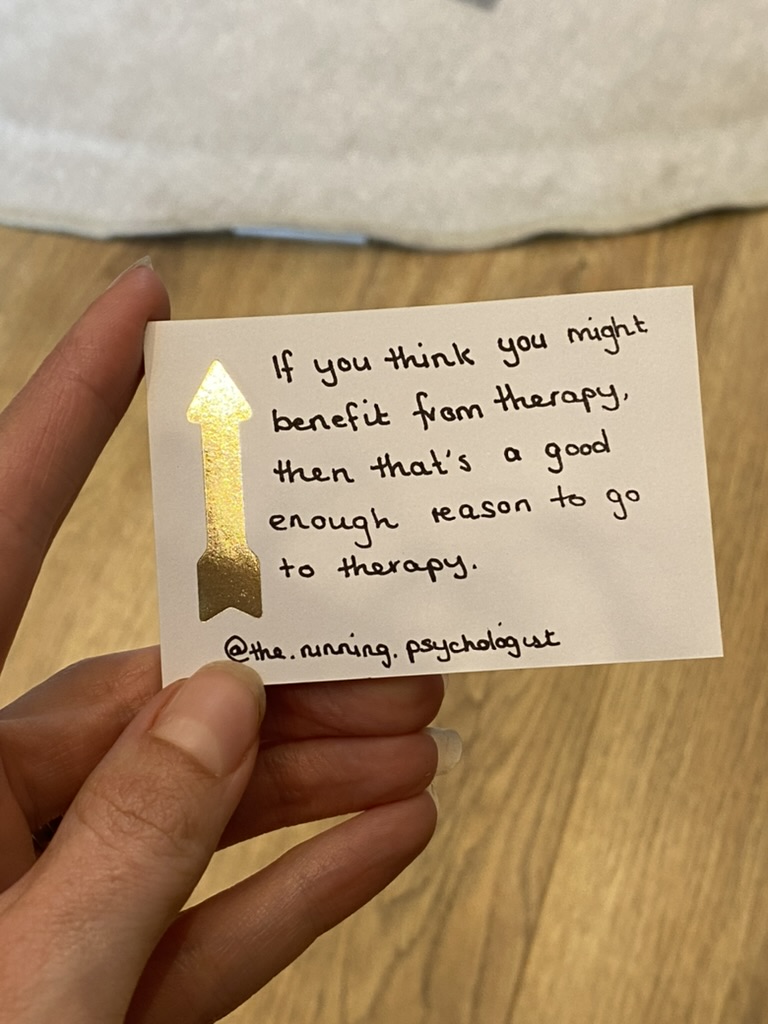 If you think you might
benefit from therapy,
then that's a good
enough reason to go
to therapy.
@the.running.psychologist